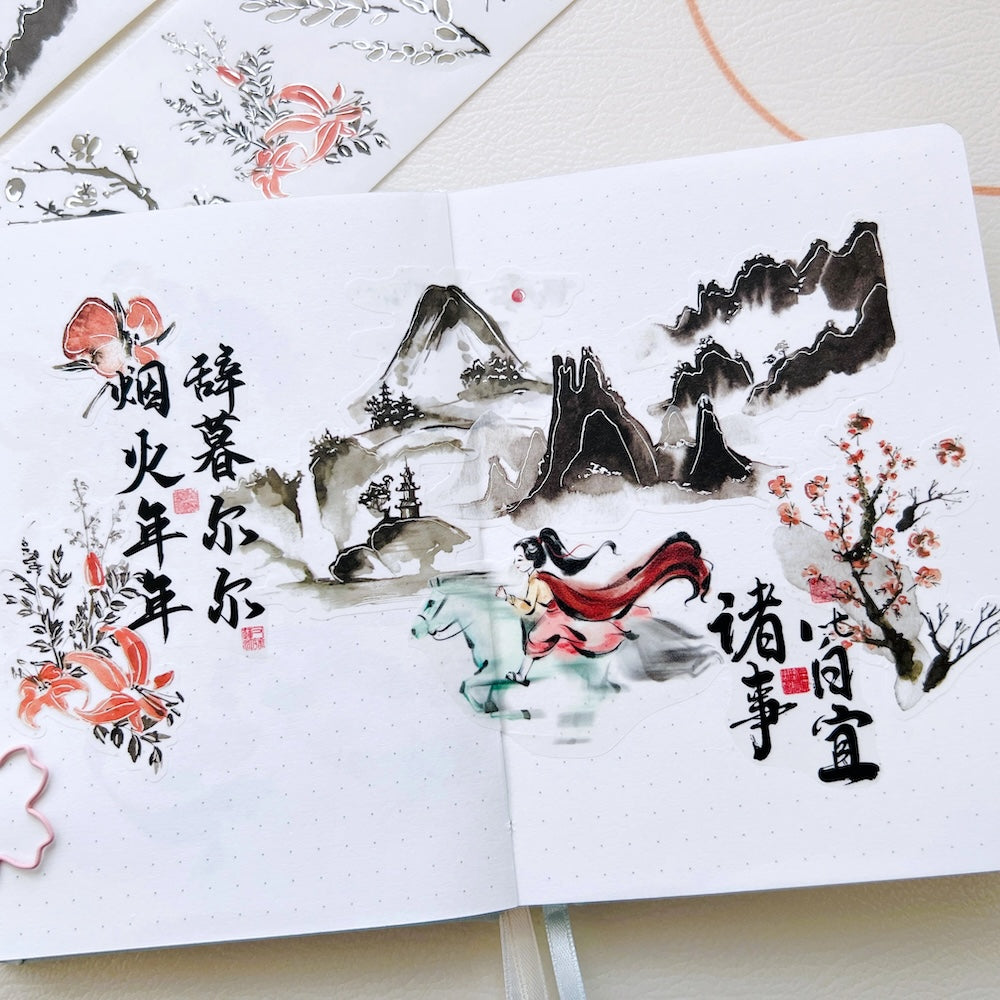 辞暮尔尔
烟火年年
诸事
皆宜